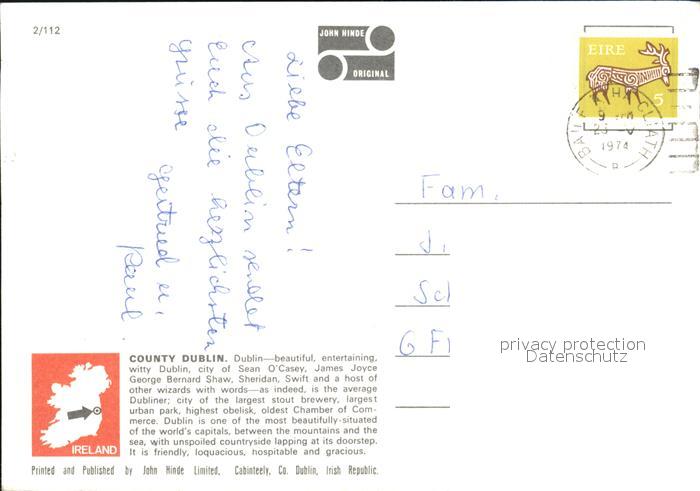 2/112
JOHN HINDE
ORIGINAL
EIRE
5
BAILE ÁTHA CLIATH
1974
Liebe Eltern!
Aus Dublin sendet
Euch die herzlichsten
Grüsse
Gertrud u.
Paul.
Fam.
J.
Sch
6 Fr
privacy protection
Datenschutz
COUNTY DUBLIN. Dublin—beautiful, entertaining,
witty Dublin, city of Sean O'Casey, James Joyce
George Bernard Shaw, Sheridan, Swift and a host of
other wizards with words—as indeed, is the average
Dubliner; city of the largest stout brewery, largest
urban park, highest obelisk, oldest Chamber of Com-
merce. Dublin is one of the most beautifully-situated
of the world's capitals, between the mountains and the
sea, with unspoiled countryside lapping at its doorstep.
It is friendly, loquacious, hospitable and gracious.
IRELAND
Printed and Published by John Hinde Limited, Cabinteely, Co. Dublin, Irish Republic.